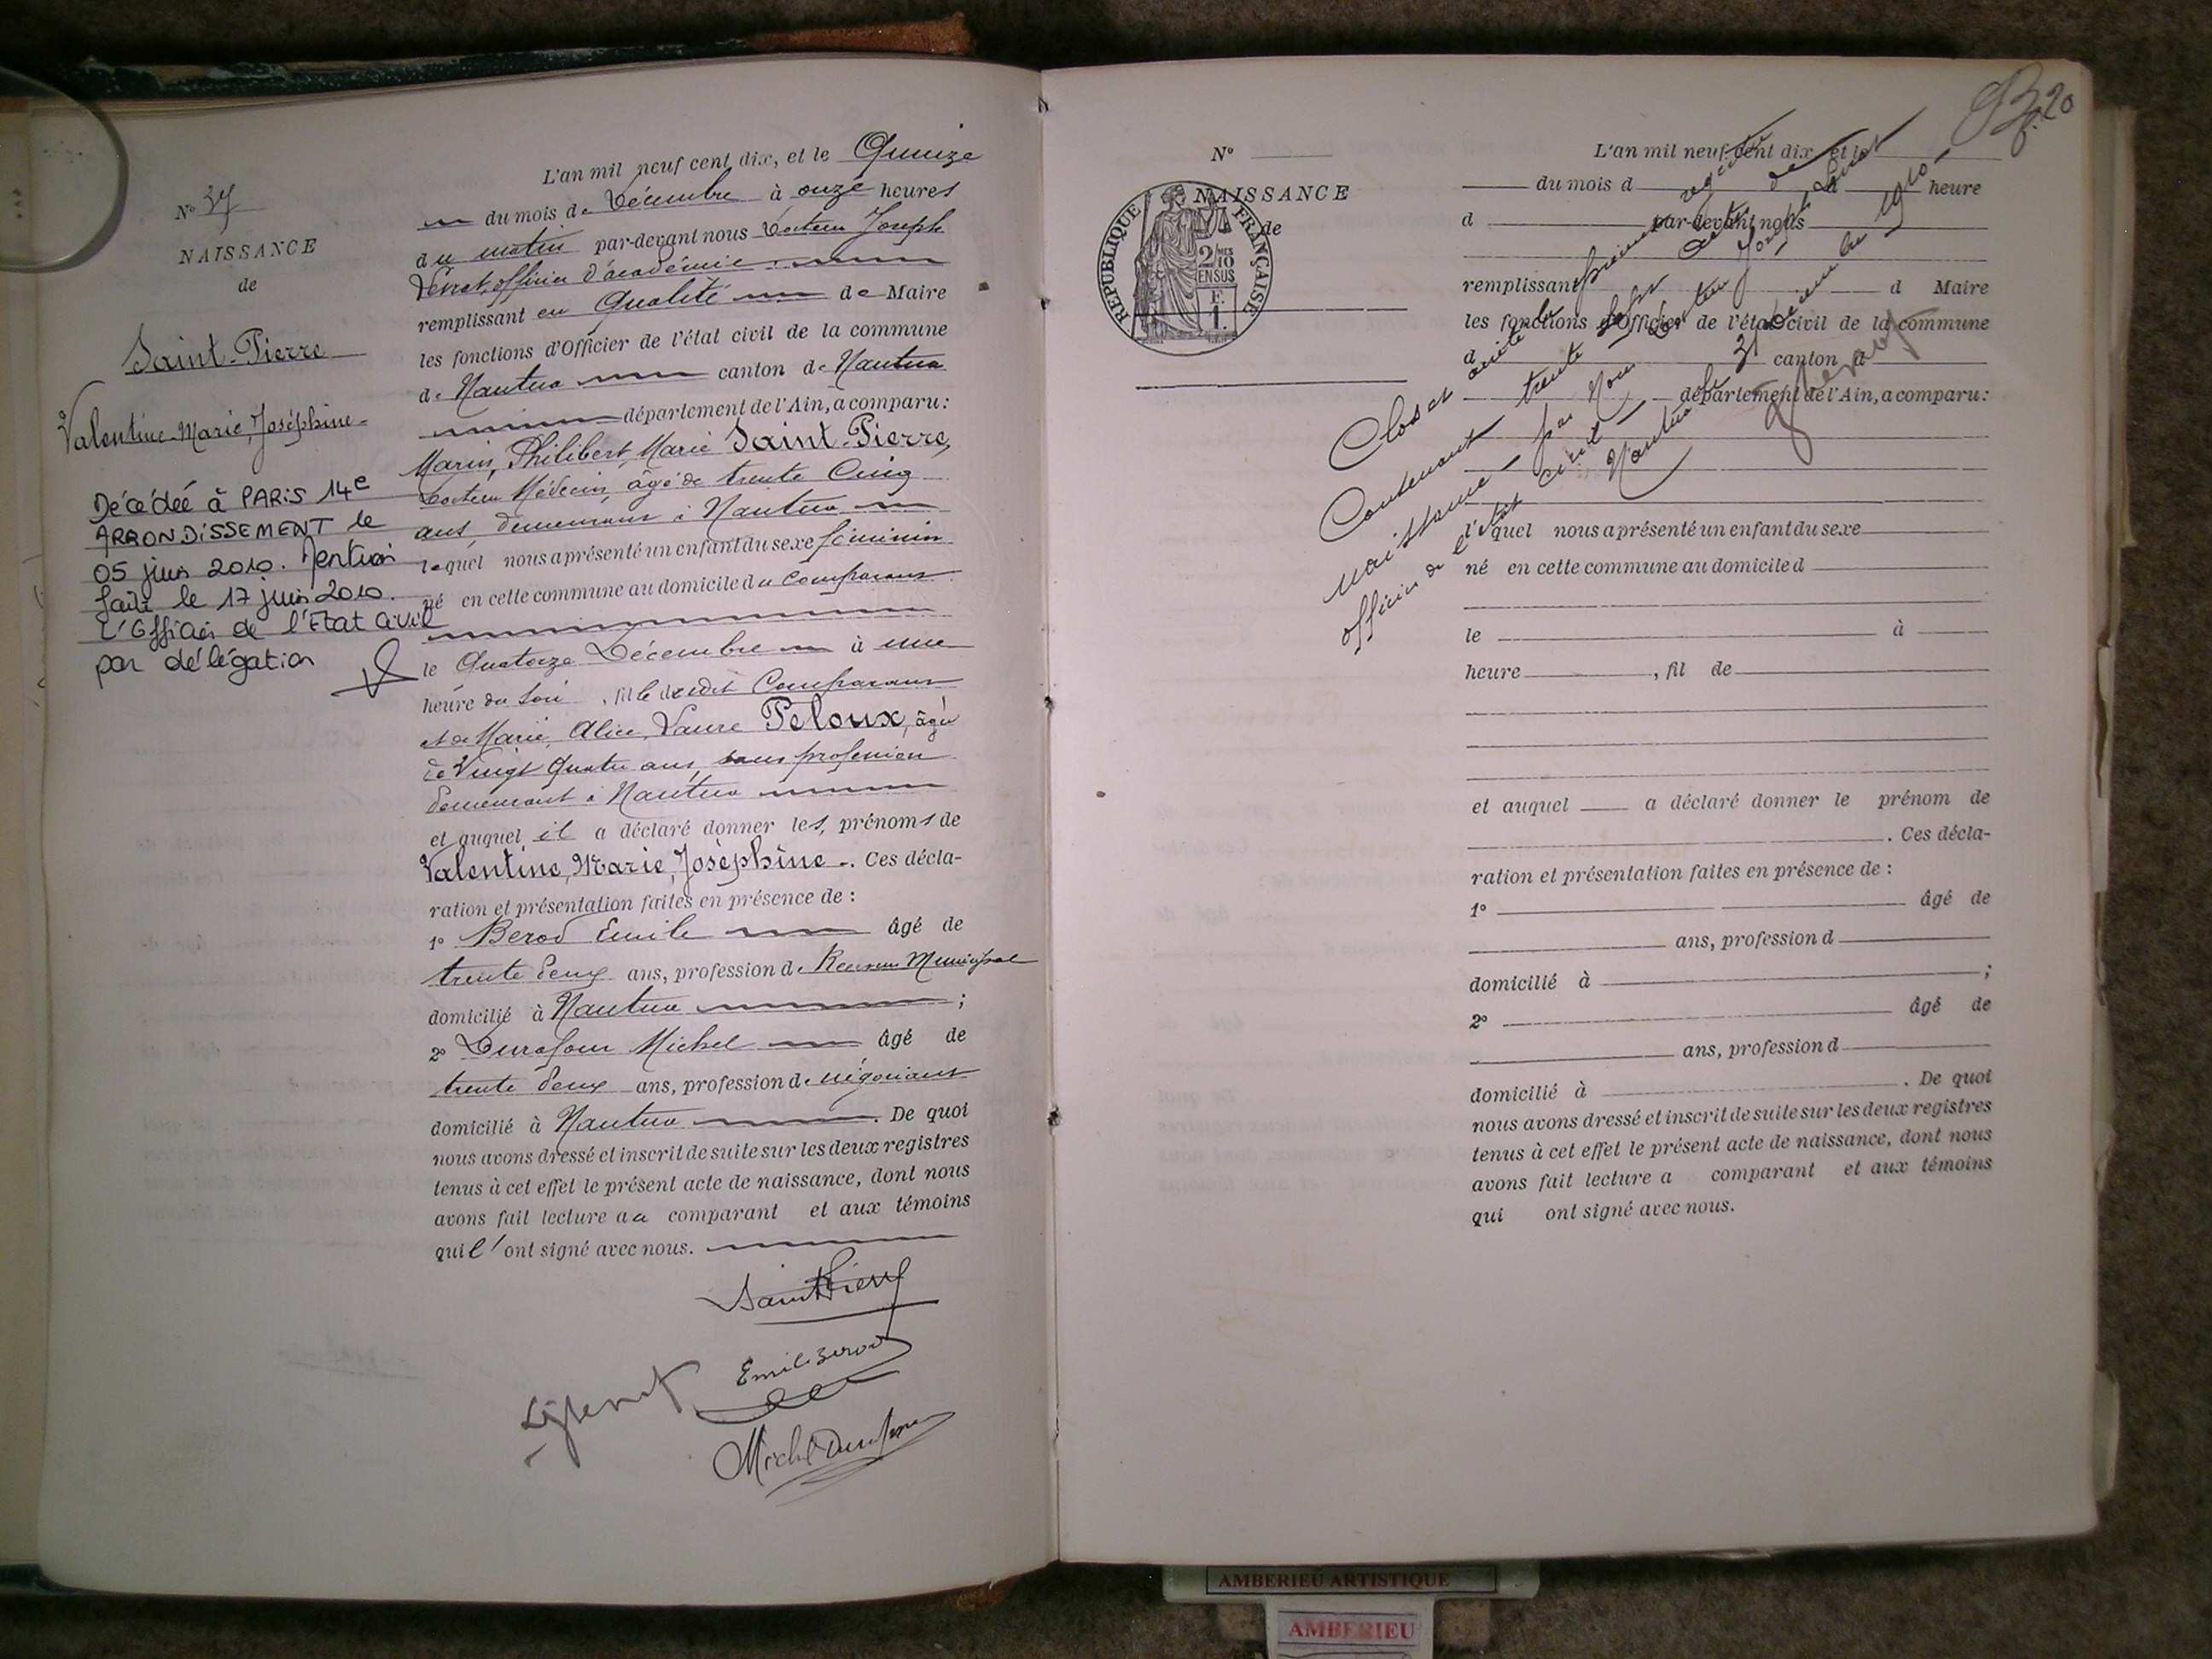 N° 37
NAISSANCE
de
Saint-Pierre
Valentine, Marie, Joséphine
Décédée à PARIS 14e
ARRONDISSEMENT le
05 juin 2010. Mention
faite le 17 juin 2010.
L'Officier de l'Etat civil
par délégation
L'an mil neuf cent dix, et le Quinze
du mois de Décembre à onze heures
du matin par-devant nous Docteur Joseph
officier d'académie
remplissant en Qualité de Maire
les fonctions d'Officier de l'état civil de la commune
de Nantua canton de Nantua
département de l'Ain, a comparu :
Marin, Philibert, Marie Saint-Pierre,
Docteur Médecin, âgé de trente Cinq
ans, demeurant à Nantua
lequel nous a présenté un enfant du sexe féminin
né en cette commune au domicile du Comparant
le Quatorze Décembre à une
heure du soir, fille dudit Comparant
et de Marie, Alice, Laure Peloux, âgée
de Vingt Quatre ans, sans profession
demeurant à Nantua
et auquel il a déclaré donner les prénoms de
Valentine, Marie, Joséphine. Ces décla-
ration et présentation faites en présence de :
1° Berod Emile âgé de
trente deux ans, profession de Receveur Municipal
domicilié à Nantua ;
2° Durafour Michel âgé de
trente deux ans, profession de négociant
domicilié à Nantua . De quoi
nous avons dressé et inscrit de suite sur les deux registres
tenus à cet effet le présent acte de naissance, dont nous
avons fait lecture au comparant et aux témoins
qui l'ont signé avec nous.
Saint Pierre
Emile Berod
Michel Durafour
20
N°
NAISSANCE
de
RÉPUBLIQUE FRANÇAISE
2/10 MES
EN SUS
F.
1.
L'an mil neuf cent dix et le
du mois d à heure
d par-devant nous
remplissant d Maire
les fonctions d'Officier de l'état civil de la commune
d canton d
département de l'Ain, a comparu :
Clos et arrêté le présent registre
Contenant trente sept actes de
naissance par Nous Docteur Joseph
officier de l'état civil
Nantua le 31 Décembre 1910
lequel nous a présenté un enfant du sexe
né en cette commune au domicile d
le à
heure , fil de
et auquel a déclaré donner le prénom de
. Ces décla-
ration et présentation faites en présence de :
1° âgé de
ans, profession d
domicilié à ;
2° âgé de
ans, profession d
domicilié à . De quoi
nous avons dressé et inscrit de suite sur les deux registres
tenus à cet effet le présent acte de naissance, dont nous
avons fait lecture a comparant et aux témoins
qui ont signé avec nous.
AMBERIEU ARTISTIQUE
AMBERIEU